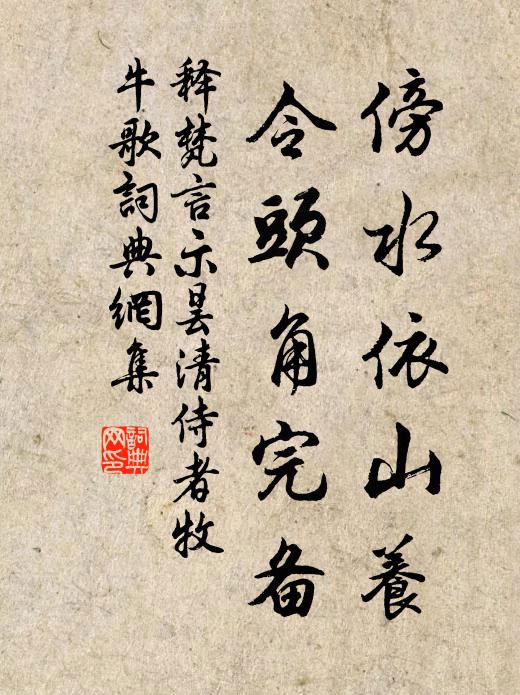 傍水依山養
令頭角完备
释梵言示昙清侍者牧
牛歌詞典網集
詞典网印